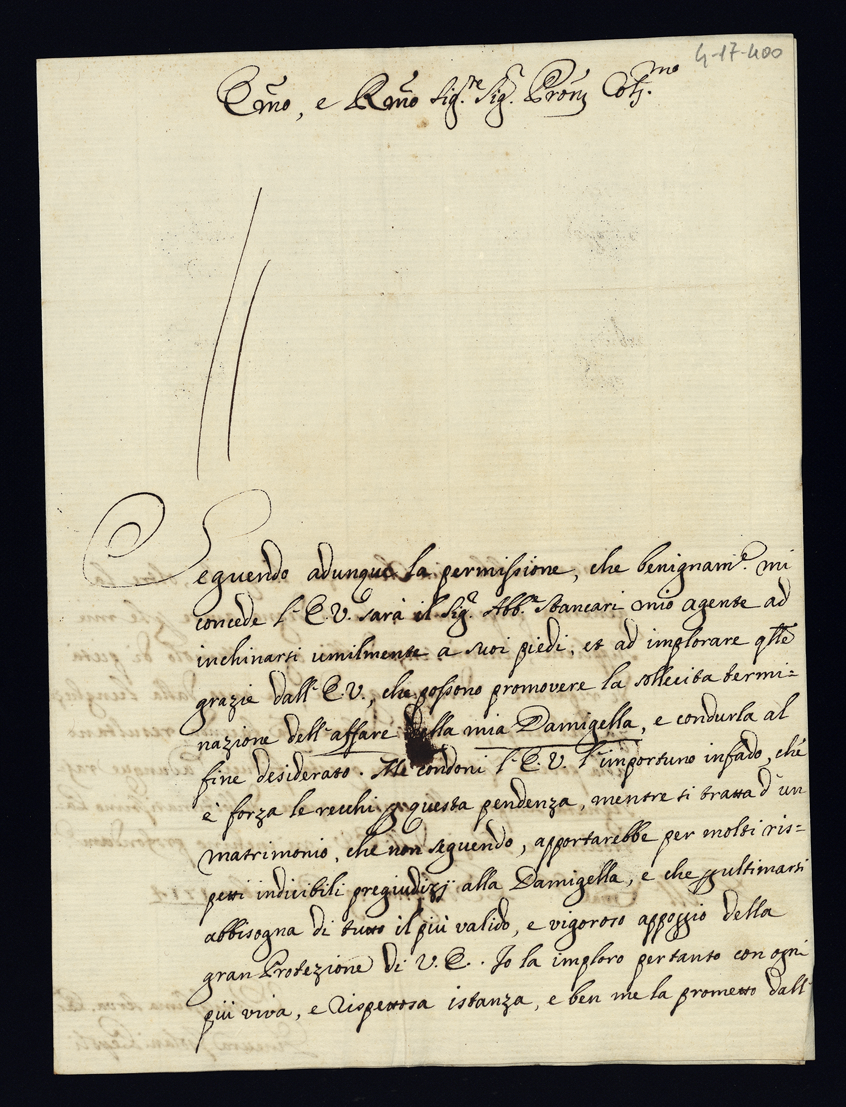 4-17-400
Emo, e Rmo Sig.re Sig.r Prõn Col.mo
Seguendo adunque la permissione, che benignam.e mi
concede l'E.V. sarà il Sig.r Abb.e Stancari mio agente ad
inchinarsi umilmente a suoi piedi, et ad implorare qlle
grazie dall'E.V., che possono promovere la sollecita termi=
nazione dell'affare della mia Damigella, e condurla al
fine desiderato. Mi condoni l'E.V. l'importuno infado, che
è forza le rechi p questa pendenza, mentre si tratta d'un
matrimonio, che non seguendo, apportarebbe per molti ris=
petti indicibili pregiudizj alla Damigella, e che p ultimarsi
abbisogna di tutto il più valido, e vigoroso appoggio della
gran Protezione di V.E. Io la imploro per tanto con ogni
più viva, e rispettosa istanza, e ben me la prometto dall'